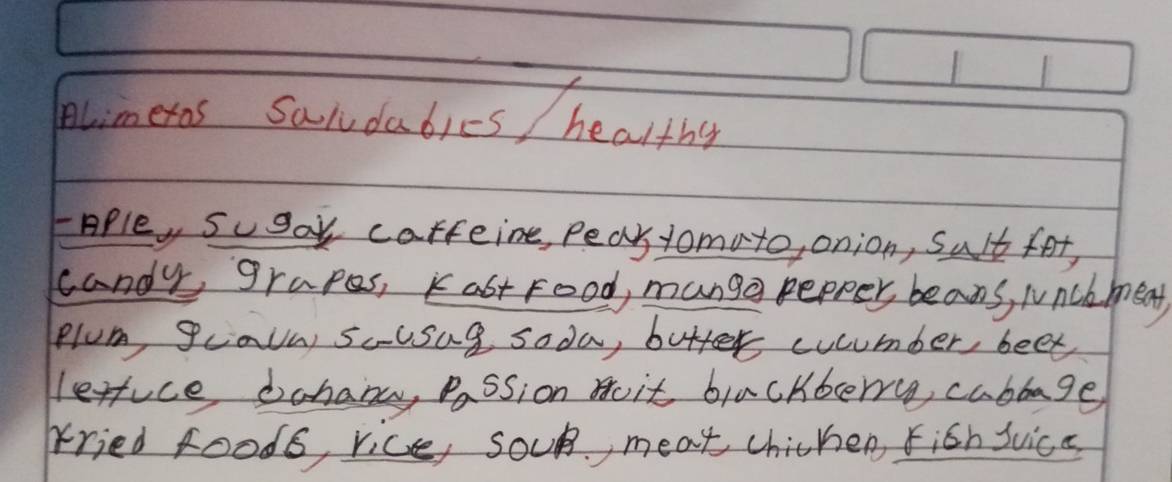 Alimetos Saludables / healthy
- Aple, Sugar, caffeine, Pear, tomato, onion, Salt fat,
candy, grapes, Fast Food, mango pepper, beans, lunch meat,
Plum, guava, sausag, soda, butter cucumber, beet,
lettuce, banana, Passion fruit blackberry, cabbage,
Fried Foods, rice, soup., meat, chicken, Fish Juice